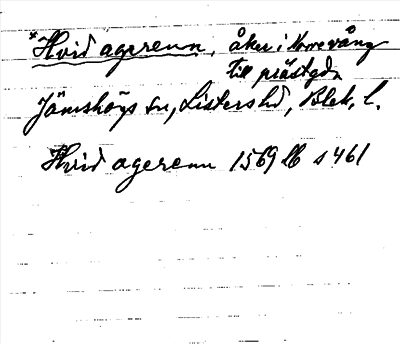 *Hvid agerenn, åker i Norrevång
till prästgdn
Jämshögs sn, Listers hd, Blek. l.
Hvid agerenn 1569 lb s 461